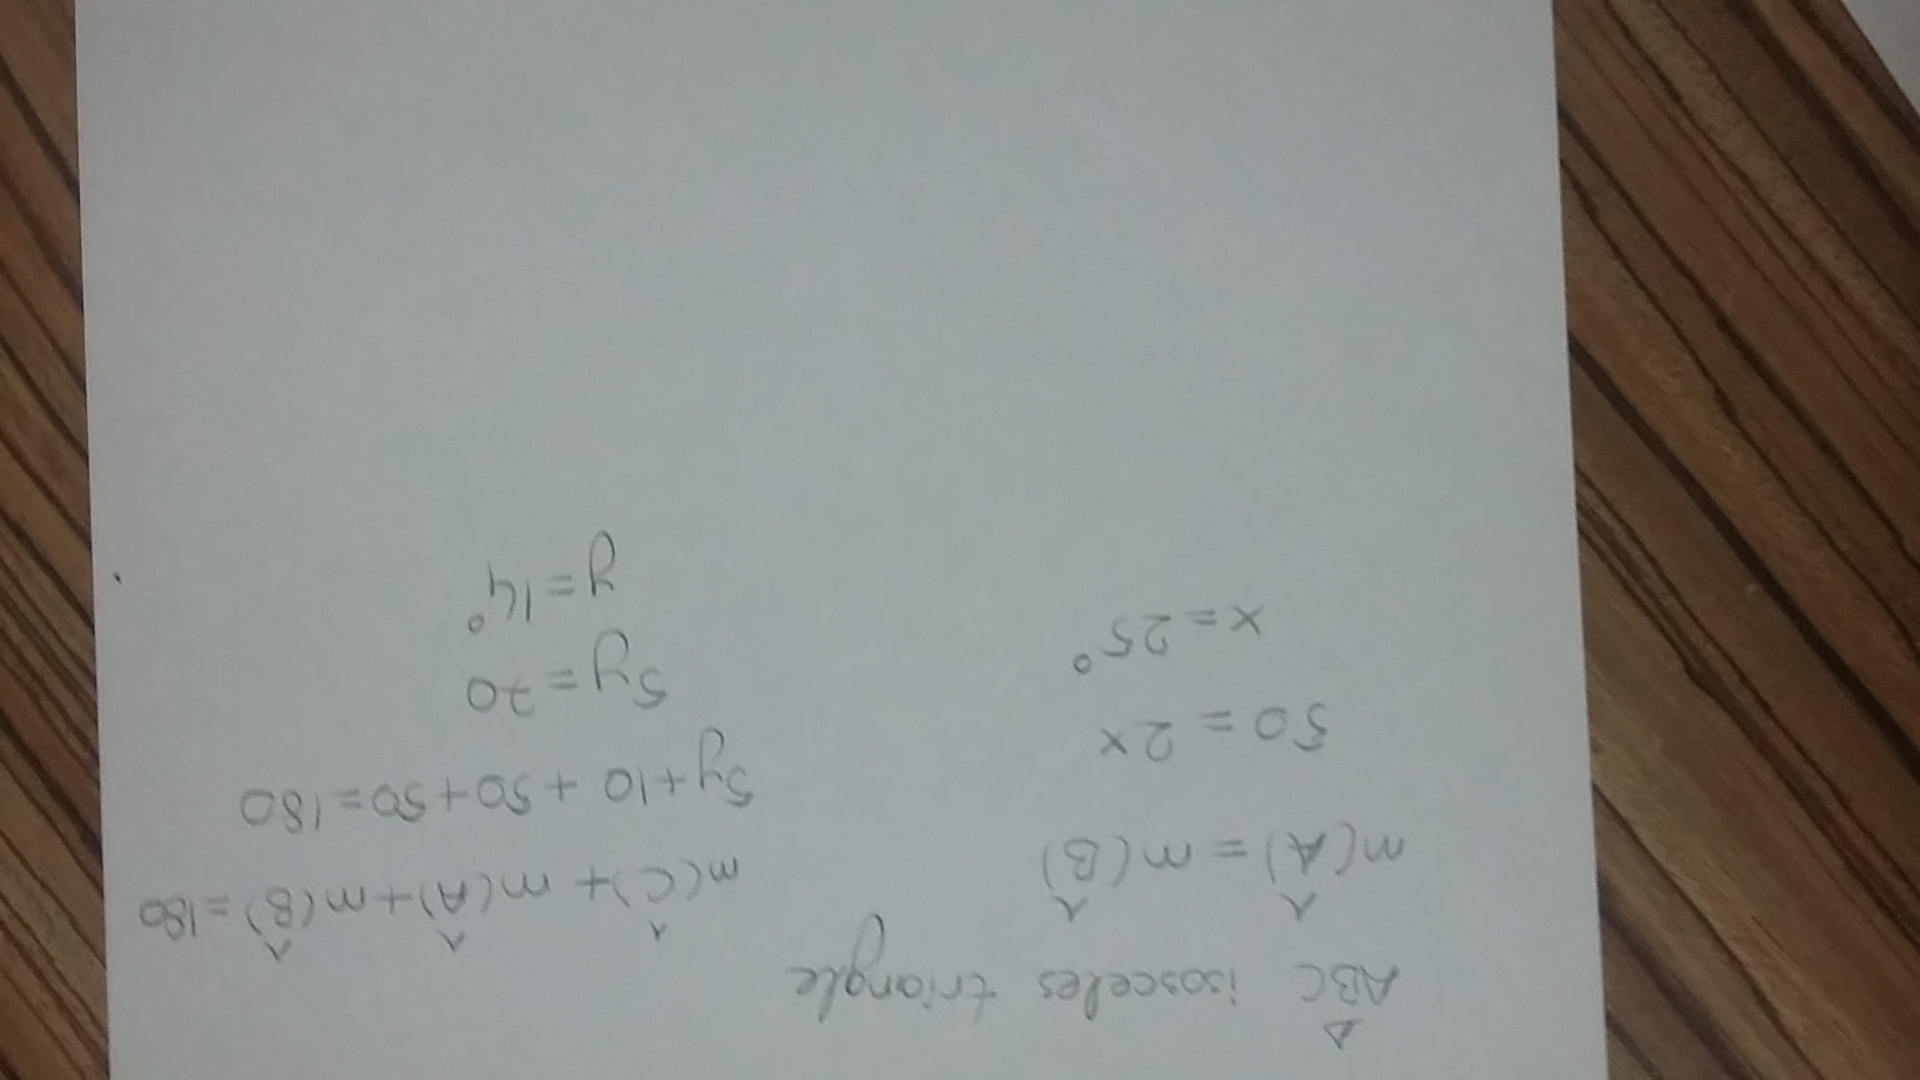 △
ABC isosceles triangle
m(Â) = m(B̂)
50 = 2x
x = 25°
m(Ĉ) + m(Â) + m(B̂) = 180
5y + 10 + 50 + 50 = 180
5y = 70
y = 14°